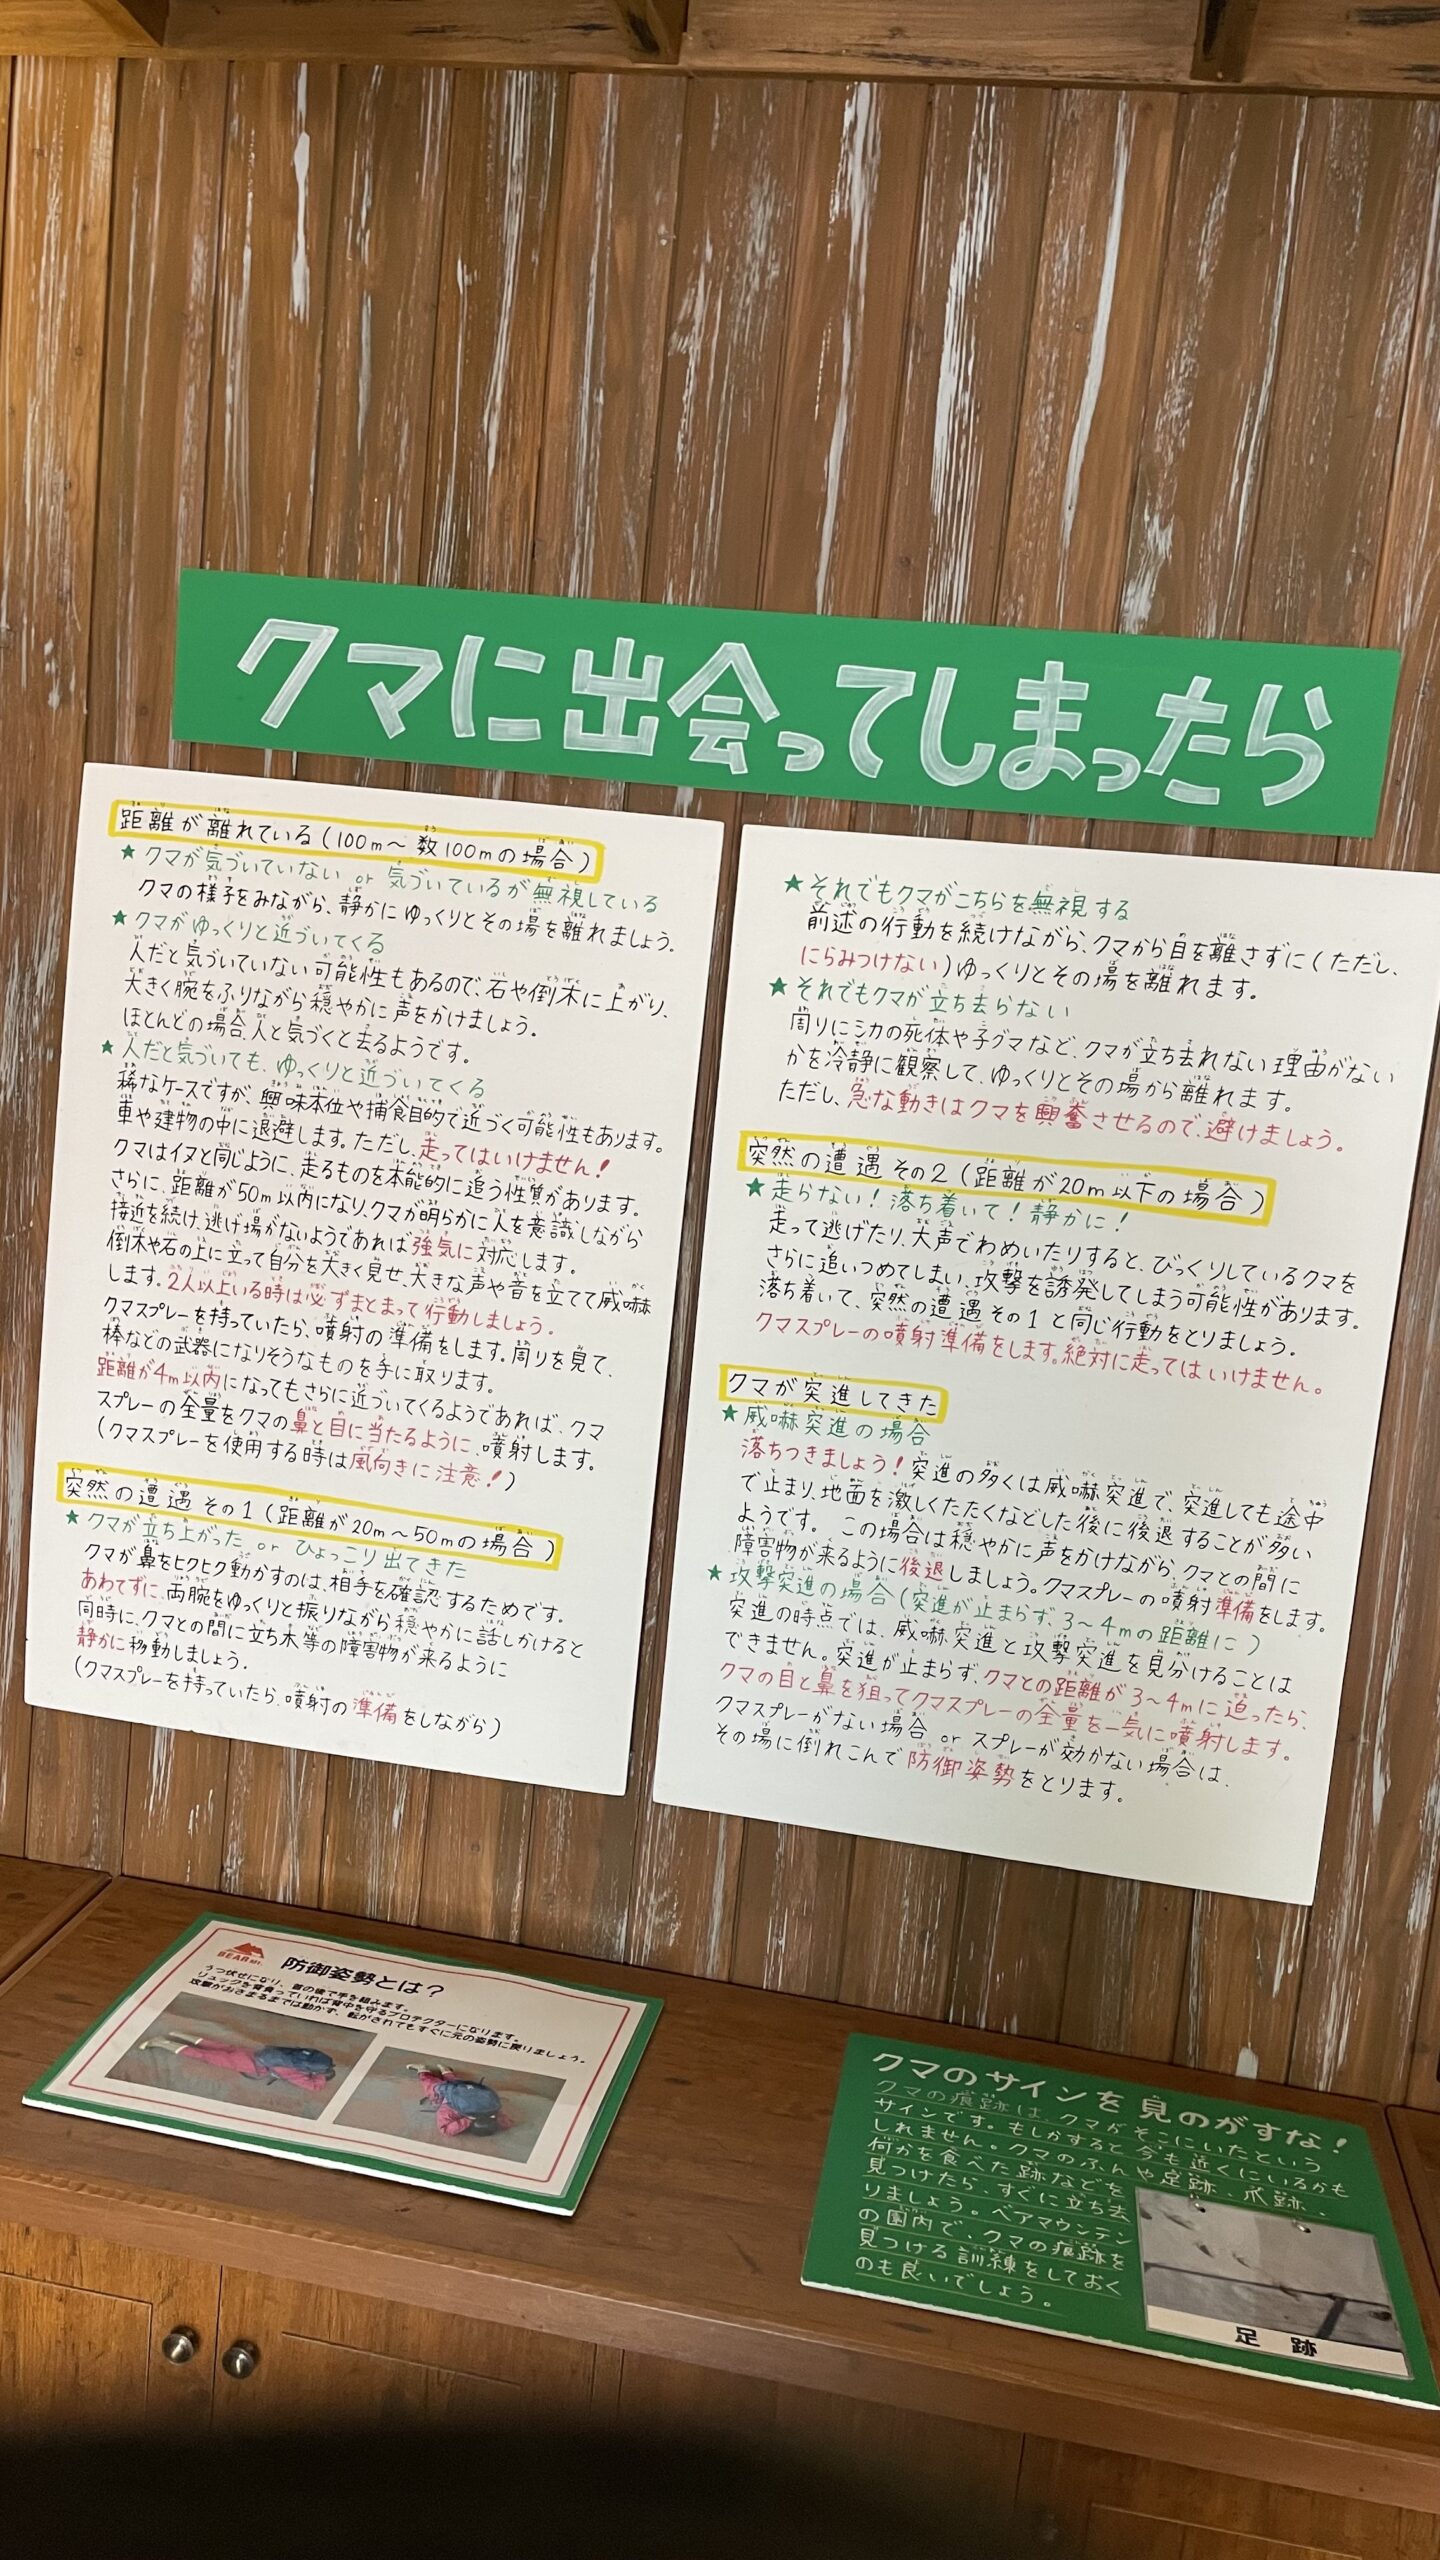 クマに出会ってしまったら
距離が離れている(100m〜数100mの場合)
★クマが気づいていない or 気づいているが無視している
クマの様子をみながら、静かにゆっくりとその場を離れましょう。
★クマがゆっくりと近づいてくる
人だと気づいていない可能性もあるので、石や倒木に上がり、
大きく腕をふりながら穏やかに声をかけましょう。
ほとんどの場合、人と気づくと去るようです。
★人だと気づいても、ゆっくりと近づいてくる
稀なケースですが、興味本位や捕食目的で近づく可能性もあります。
車や建物の中に退避します。ただし、走ってはいけません!
クマはイヌと同じように、走るものを本能的に追う性質があります。
さらに、距離が50m以内になり、クマが明らかに人を意識しながら
接近を続け、逃げ場がないようであれば強気に対応します。
倒木や石の上に立って自分を大きく見せ、大きな声や音を立てて威嚇
します。2人以上いる時は必ずまとまって行動しましょう。
クマスプレーを持っていたら、噴射の準備をします。周りを見て、
棒などの武器になりそうなものを手に取ります。
距離が4m以内になってもさらに近づいてくるようであれば、クマ
スプレーの全量をクマの鼻と目に当たるように、噴射します。
(クマスプレーを使用する時は風向きに注意!)
突然の遭遇 その1(距離が20m〜50mの場合)
★クマが立ち上がった or ひょっこり出てきた
クマが鼻をヒクヒク動かすのは、相手を確認するためです。
あわてずに、両腕をゆっくりと振りながら穏やかに話しかけると
同時に、クマとの間に立ち木等の障害物が来るように
静かに移動しましょう。
(クマスプレーを持っていたら、噴射の準備をしながら)
★それでもクマがこちらを無視する
前述の行動を続けながら、クマから目を離さずに(ただし、
にらみつけない)ゆっくりとその場を離れます。
★それでもクマが立ち去らない
周りにシカの死体や子グマなど、クマが立ち去れない理由がない
かを冷静に観察して、ゆっくりとその場から離れます。
ただし、急な動きはクマを興奮させるので、避けましょう。
突然の遭遇 その2(距離が20m以下の場合)
★走らない!落ち着いて!静かに!
走って逃げたり、大声でわめいたりすると、びっくりしているクマを
さらに追いつめてしまい、攻撃を誘発してしまう可能性があります。
落ち着いて、突然の遭遇 その1と同じ行動をとりましょう。
クマスプレーの噴射準備をします。絶対に走ってはいけません。
クマが突進してきた
★威嚇突進の場合
落ちつきましょう!突進の多くは威嚇突進で、突進しても途中
で止まり、地面を激しくたたくなどした後に後退することが多い
ようです。この場合は穏やかに声をかけながら、クマとの間に
障害物が来るように後退しましょう。クマスプレーの噴射準備をします。
★攻撃突進の場合(突進が止まらず、3〜4mの距離に)
突進の時点では、威嚇突進と攻撃突進を見分けることは
できません。突進が止まらず、クマとの距離が3〜4mに迫ったら、
クマの目と鼻を狙ってクマスプレーの全量を一気に噴射します。
クマスプレーがない場合 or スプレーが効かない場合は、
その場に倒れこんで防御姿勢をとります。
BEAR Mt.
防御姿勢とは?
うつ伏せになり、首の後で手を組みます。
リュックを背負っていれば背中を守るプロテクターになります。
攻撃がおさまるまでは動かず、転がされてもすぐに元の姿勢に戻りましょう。
クマのサインを見のがすな!
クマの痕跡は、クマがそこにいたという
サインです。もしかすると今も近くにいるかも
しれません。クマのふんや足跡、爪跡、
何かを食べた跡などを
見つけたら、すぐに立ち去
りましょう。ベアマウンテン
の園内で、クマの痕跡を
見つける訓練をしておく
のも良いでしょう。
足跡